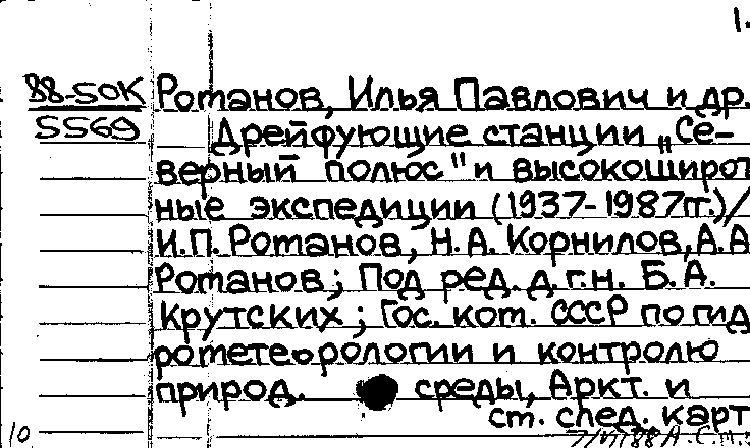 1.
88-50К Ротанов, Илья Павлович и др.
5569 Дрейфующие станции „Се-
верный полюс" и высокоширот
ные экспедиции (1937-1987гг.)/
И.П. Ротанов, Н.А. Корнилов, А.А
Ротанов; Под ред. д.г.н. Б.А.
Крутских; Гос. ком. СССР по гид
рометеорологии и контролю
природ. среды, Аркт. и
ст. след. карт
10